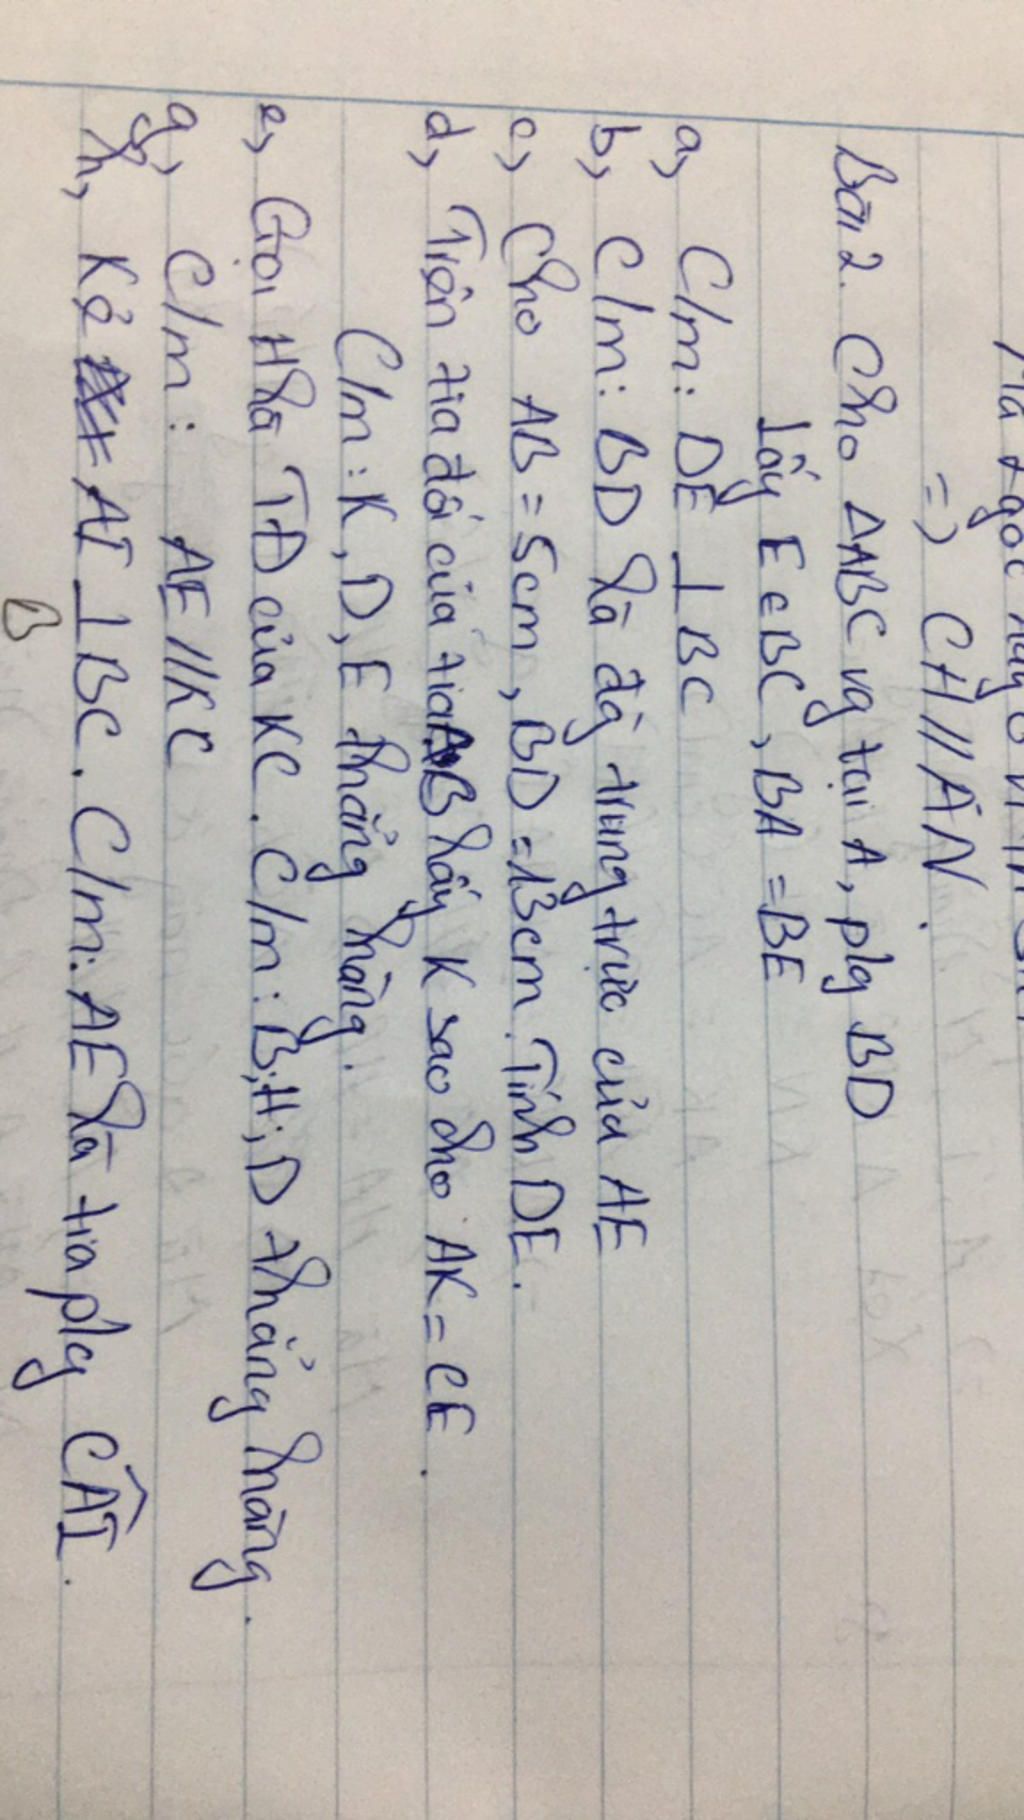 =) CH // AN.
Bài 2. Cho ΔABC vg tại A, plg BD
lấy E ∈ BC, BA = BE
a, C/m: DE ⊥ BC
b, C/m: BD là đg trung trực của AE
c, Cho AB = 5cm, BD = 13cm. Tính DE.
d, Trên tia đối của tia AB lấy K sao cho AK = CE.
C/m: K, D, E thẳng hàng.
e, Gọi H là TĐ của KC. C/m: B; H; D thẳng hàng.
g, C/m: AE // KC
h, Kẻ AI ⊥ BC. C/m: AE là tia plg CÂI.
B